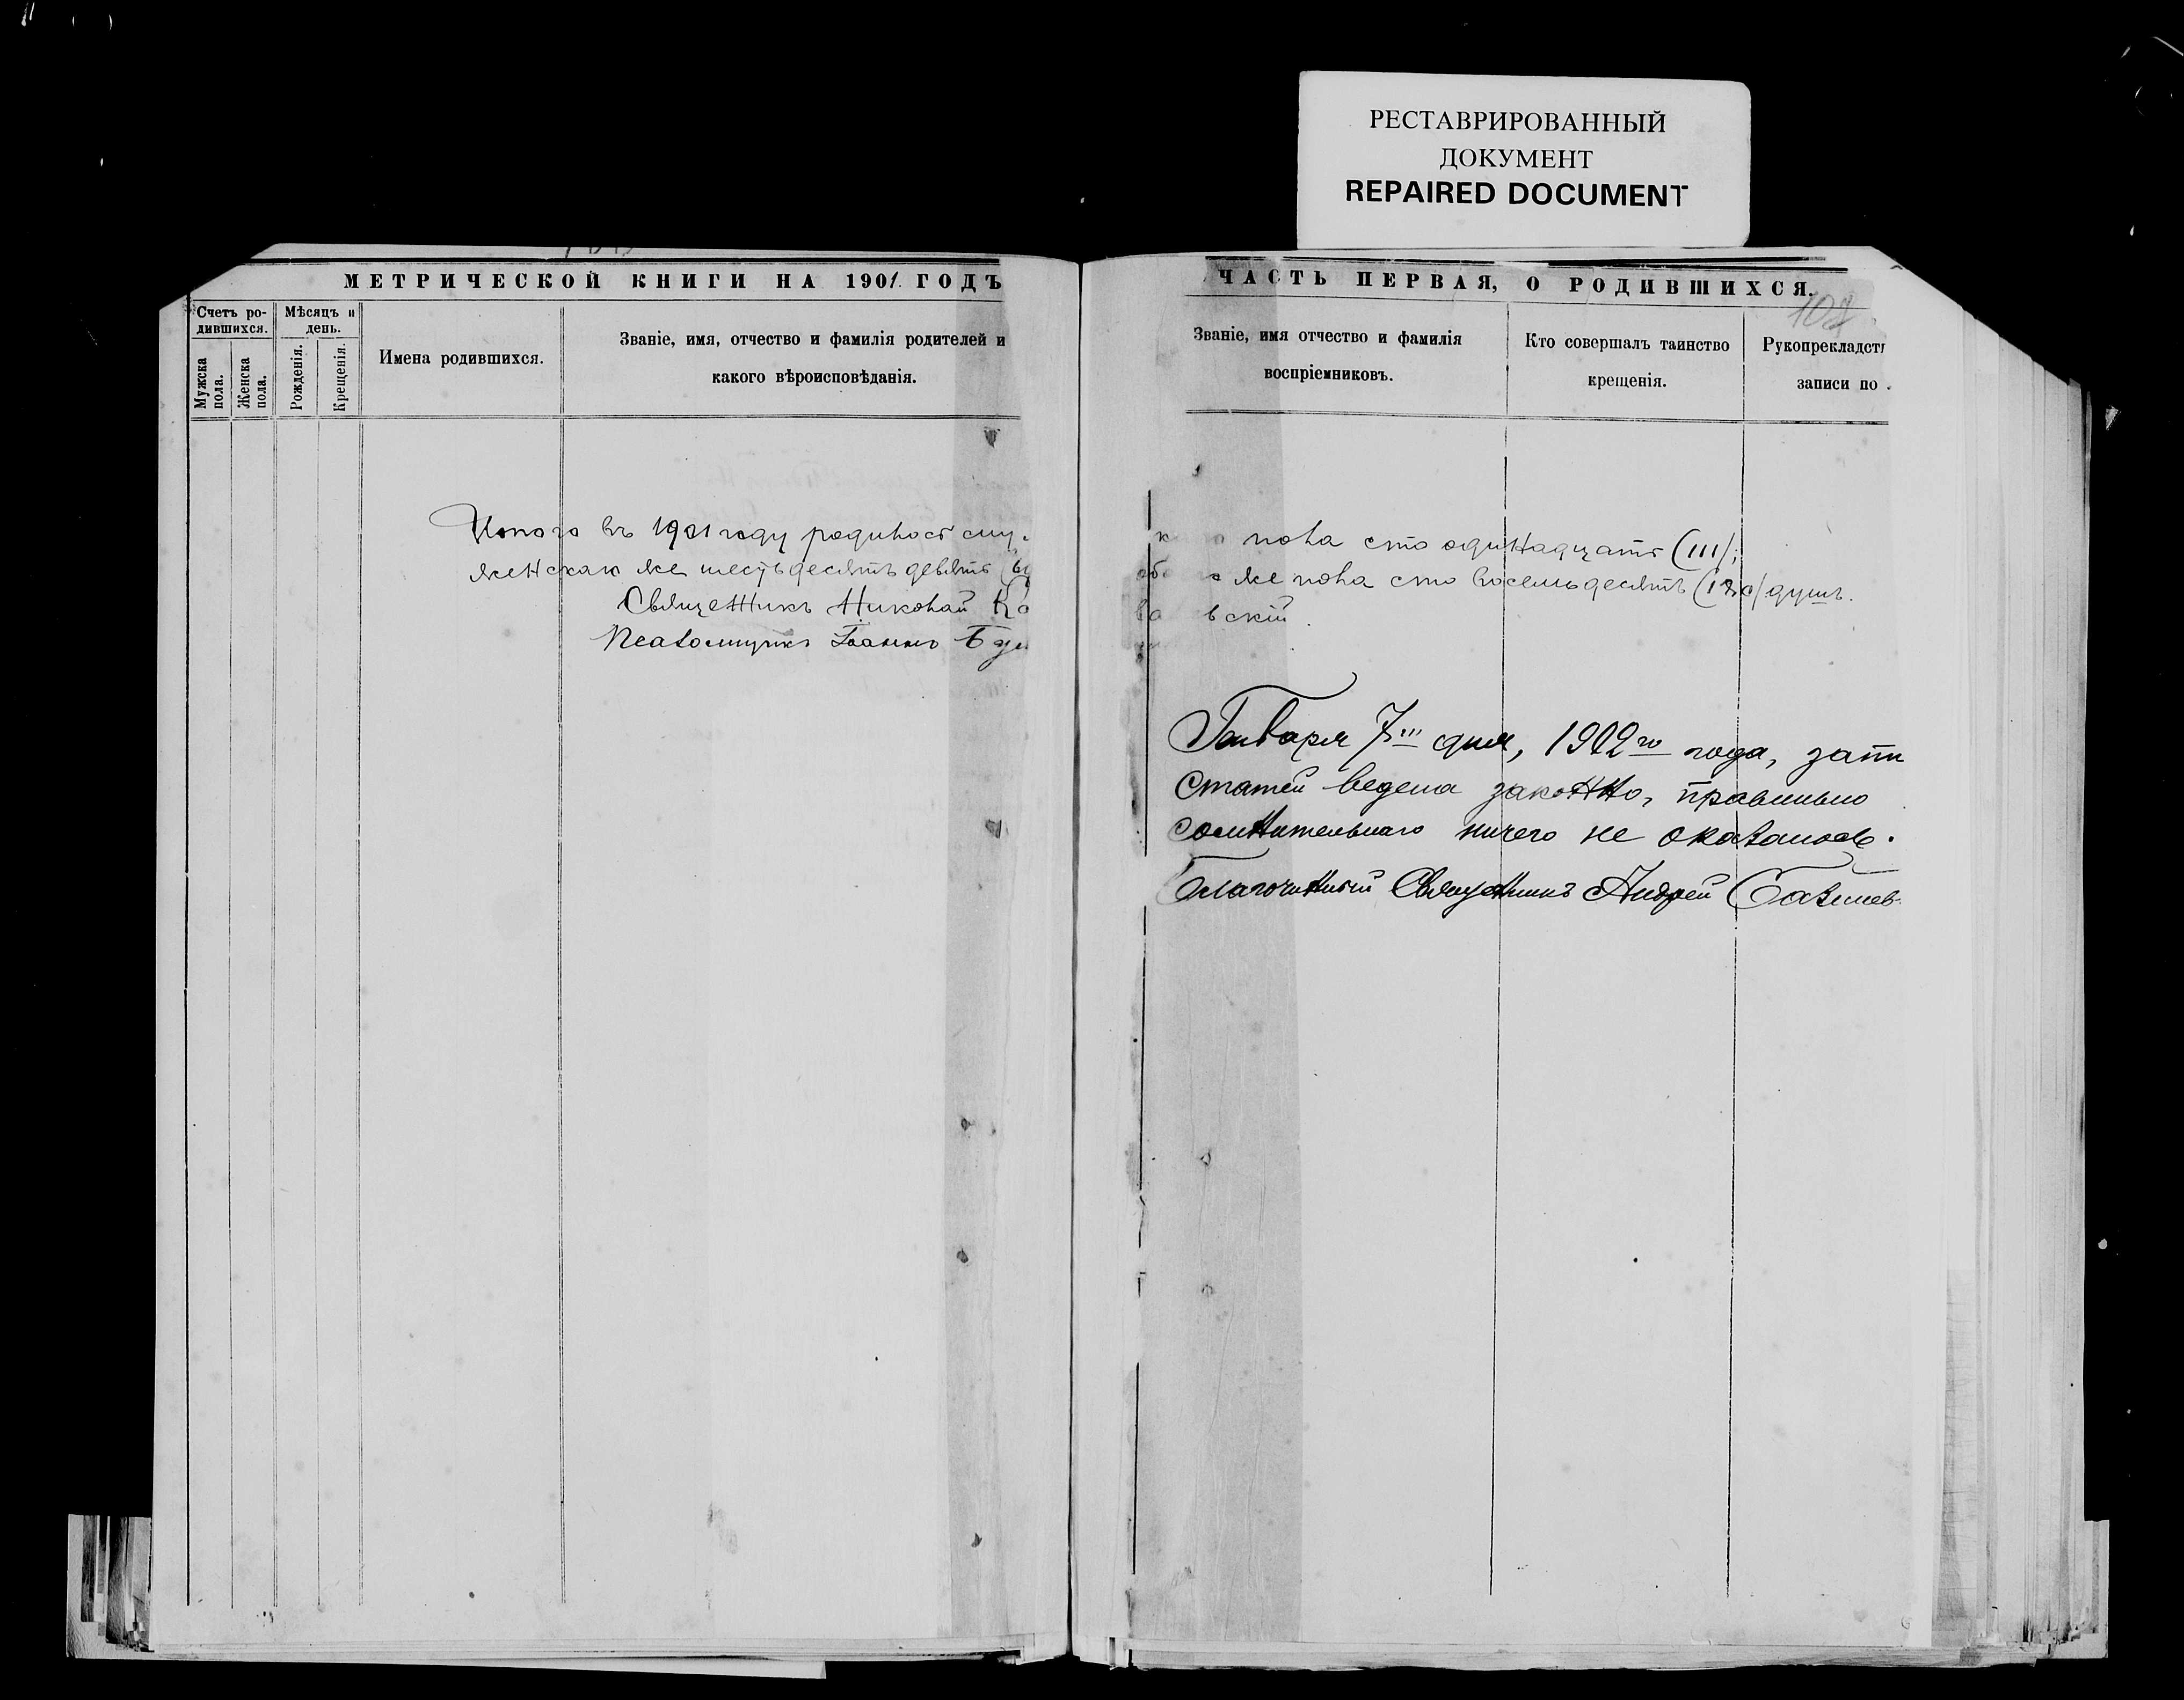 РЕСТАВРИРОВАННЫЙ
ДОКУМЕНТ
REPAIRED DOCUMENT
МЕТРИЧЕСКОЙ КНИГИ НА 1901 ГОДЪ
Счетъ ро-
дившихся.
Мужска
пола.
Женска
пола.
Мѣсяцъ и
день.
Рожденія.
Крещенія.
Имена родившихся.
Званіе, имя, отчество и фамилія родителей и
какого вѣроисповѣданія.
Итого въ 1901 году родилось му
женскаго же шестьдесятъ девять (6
Священникъ Николай Ко
Псаломщикъ Іоаннъ
ЧАСТЬ ПЕРВАЯ, О РОДИВШИХСЯ.
108
Званіе, имя отчество и фамилія
воспріемниковъ.
Кто совершалъ таинство
крещенія.
Рукопрекладст
записи по
пола сто одинадцать (111);
же пола сто восемьдесятъ (180) душъ.
вскій.
Января 7го дня, 1902го года, запи
статей ведена законно, правильно
сомнительнаго ничего не оказалось.
Благочинный Священникъ Андрей